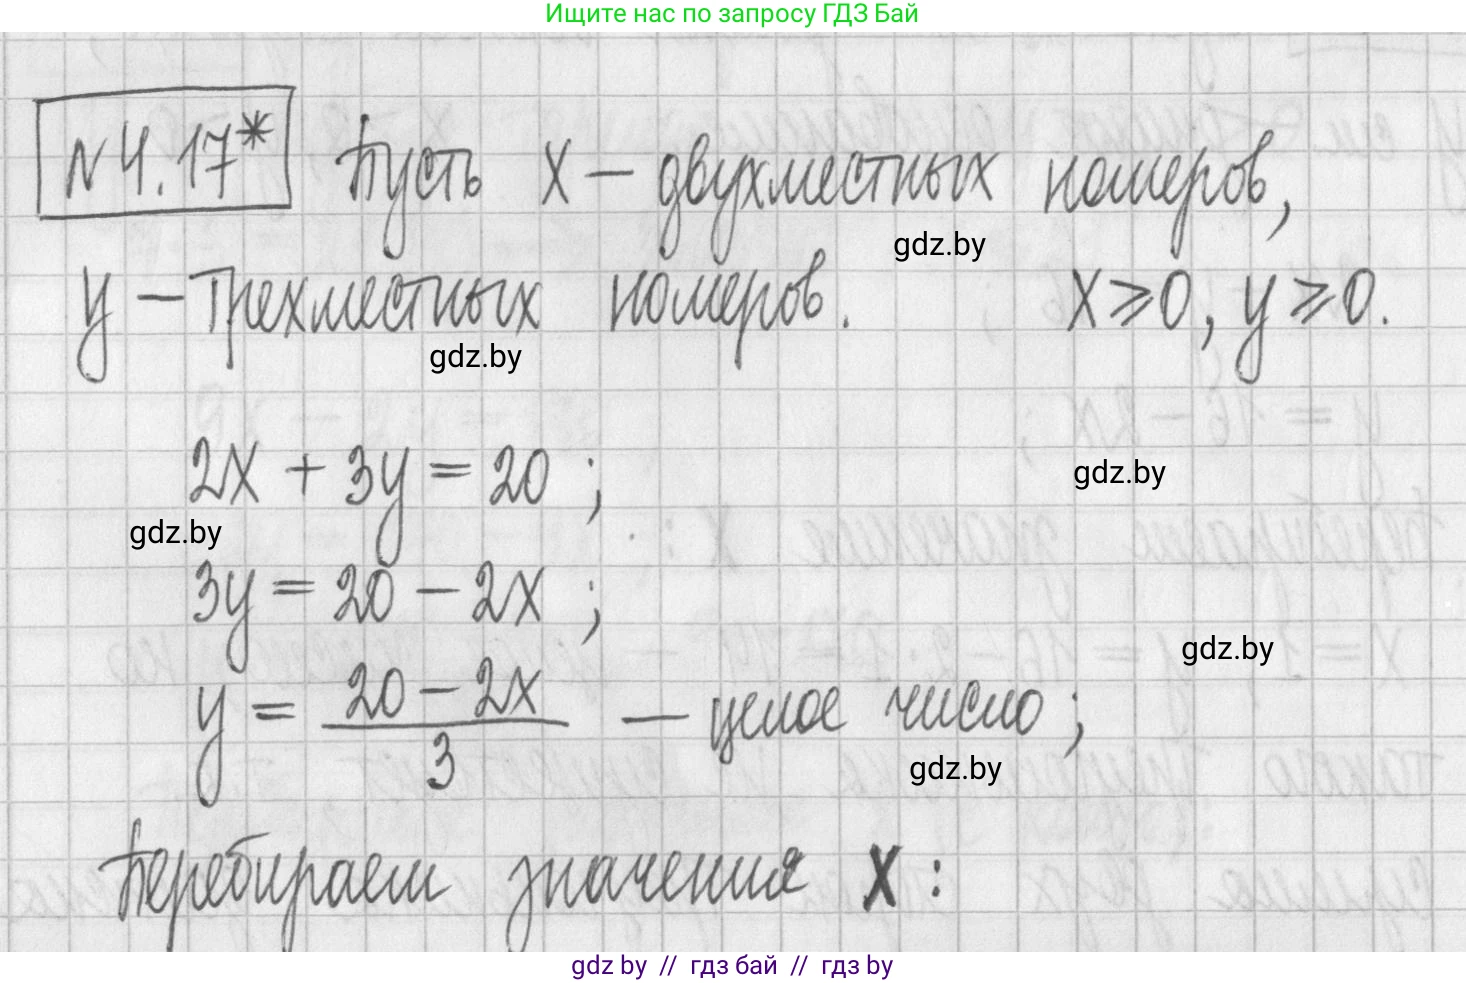 Ищите нас по запросу ГДЗ Бай
N 4.17* Пусть x – двухместных номеров,
gdz.by
y – трехместных номеров. x ⩾ 0, y ⩾ 0.
gdz.by
2x + 3y = 20 ;
gdz.by
gdz.by
3y = 20 – 2x ;
gdz.by
y = (20 – 2x)/3 – целое число ;
gdz.by
Перебираем значения x :
gdz by // гдз бай // гдз by